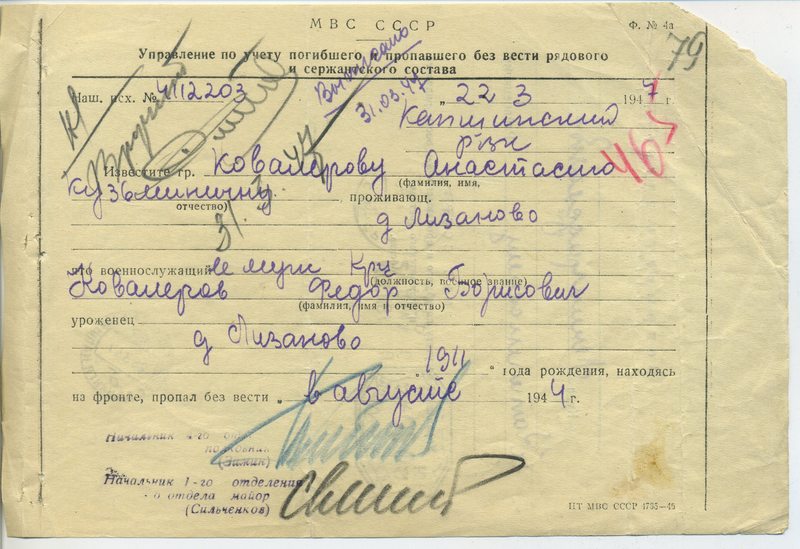 МВС СССР
Ф. № 4а
79
Управление по учету погибшего и пропавшего без вести рядового
и сержантского состава
Наш. исх. № 4112203
31.03.47
„ 22 3 1947 г.
р-зн
Известите гр. Ковалерову Анастасию
Кузьминичну
(фамилия, имя,
отчество)
, проживающ.
31. 3. 47
д Лизаново
что военнослужащий ее муж Кр-ц
(должность, военное звание)
Ковалеров Федор Борисович
(фамилия, имя и отчество)
уроженец
д Лизаново
1911 года рождения, находясь
на фронте, пропал без вести „ в августе 1944 г.
Начальник 4-го
(Зимин)
Начальник 1-го отделения
о отдела майор
(Сильченков)
ПТ МВС СССР 4735—46